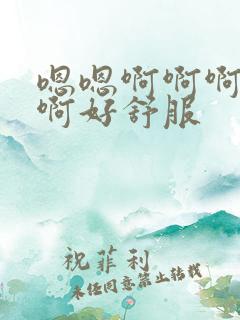 嗯嗯啊啊啊
啊好舒服
祝菲利
未经同意禁止转载